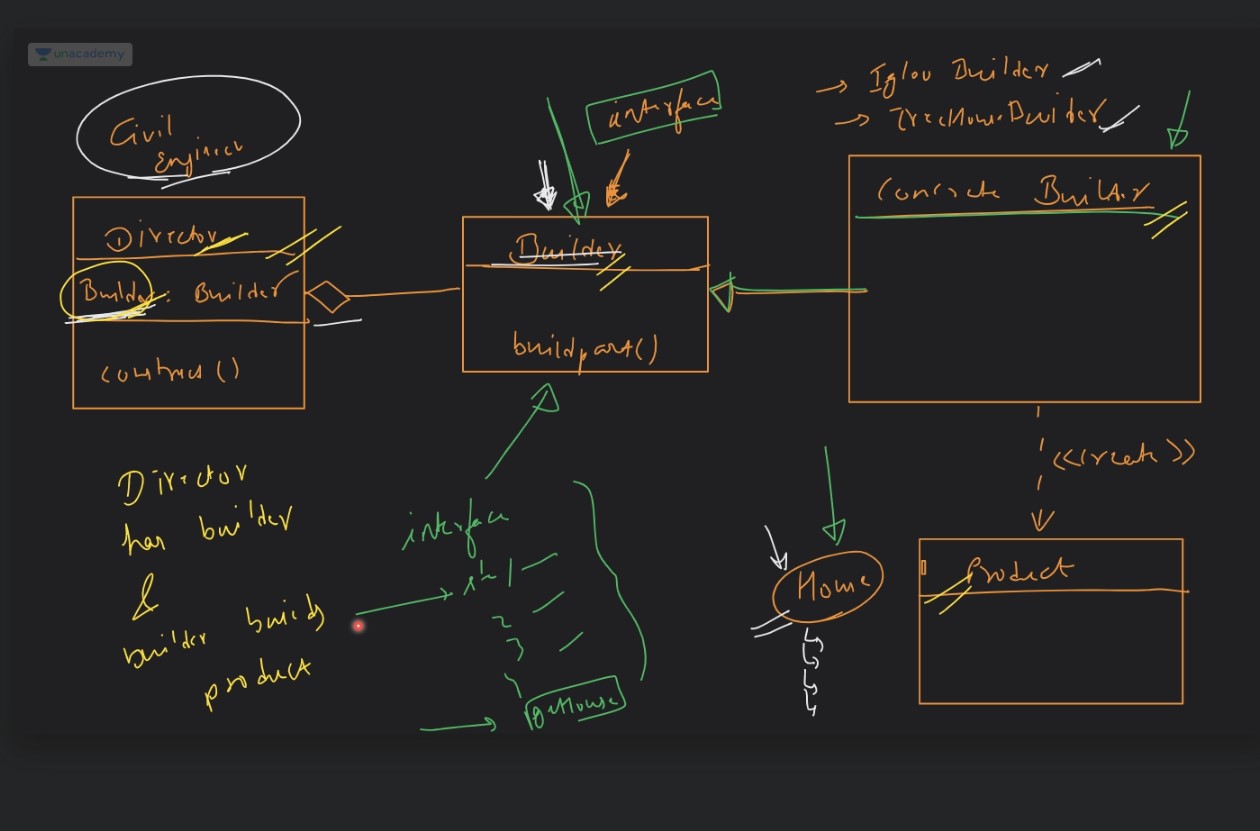 unacademy
Civil
Engineer
Director
Builder : Builder
construct ()
interface
Builder
buildpart()
→ Igloo Builder
→ TreeHouseBuilder
Concrete Builder
<<create>>
Product
Home
Director
has builder
&
builder builds
product
interface
1
2
3
4
getHouse